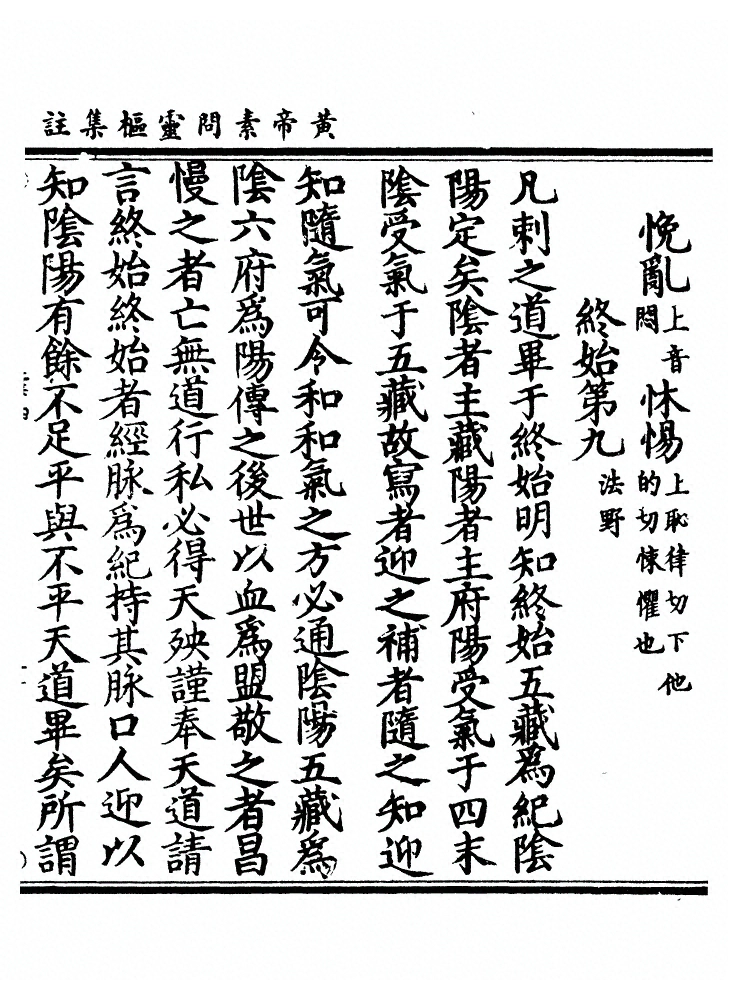 黃帝素問靈樞集註
悗亂上音悶怵惕上恥律切下他的切悚懼也
終始第九 法野
凡刺之道畢于終始明知終始五藏爲紀陰
陽定矣陰者主藏陽者主府陽受氣于四末
陰受氣于五藏故寫者迎之補者隨之知迎
知隨氣可令和和氣之方必通陰陽五藏爲
陰六府爲陽傳之後世以血爲盟敬之者昌
慢之者亡無道行私必得天殃謹奉天道請
言終始終始者經脉爲紀持其脉口人迎以
知陰陽有餘不足平與不平天道畢矣所謂